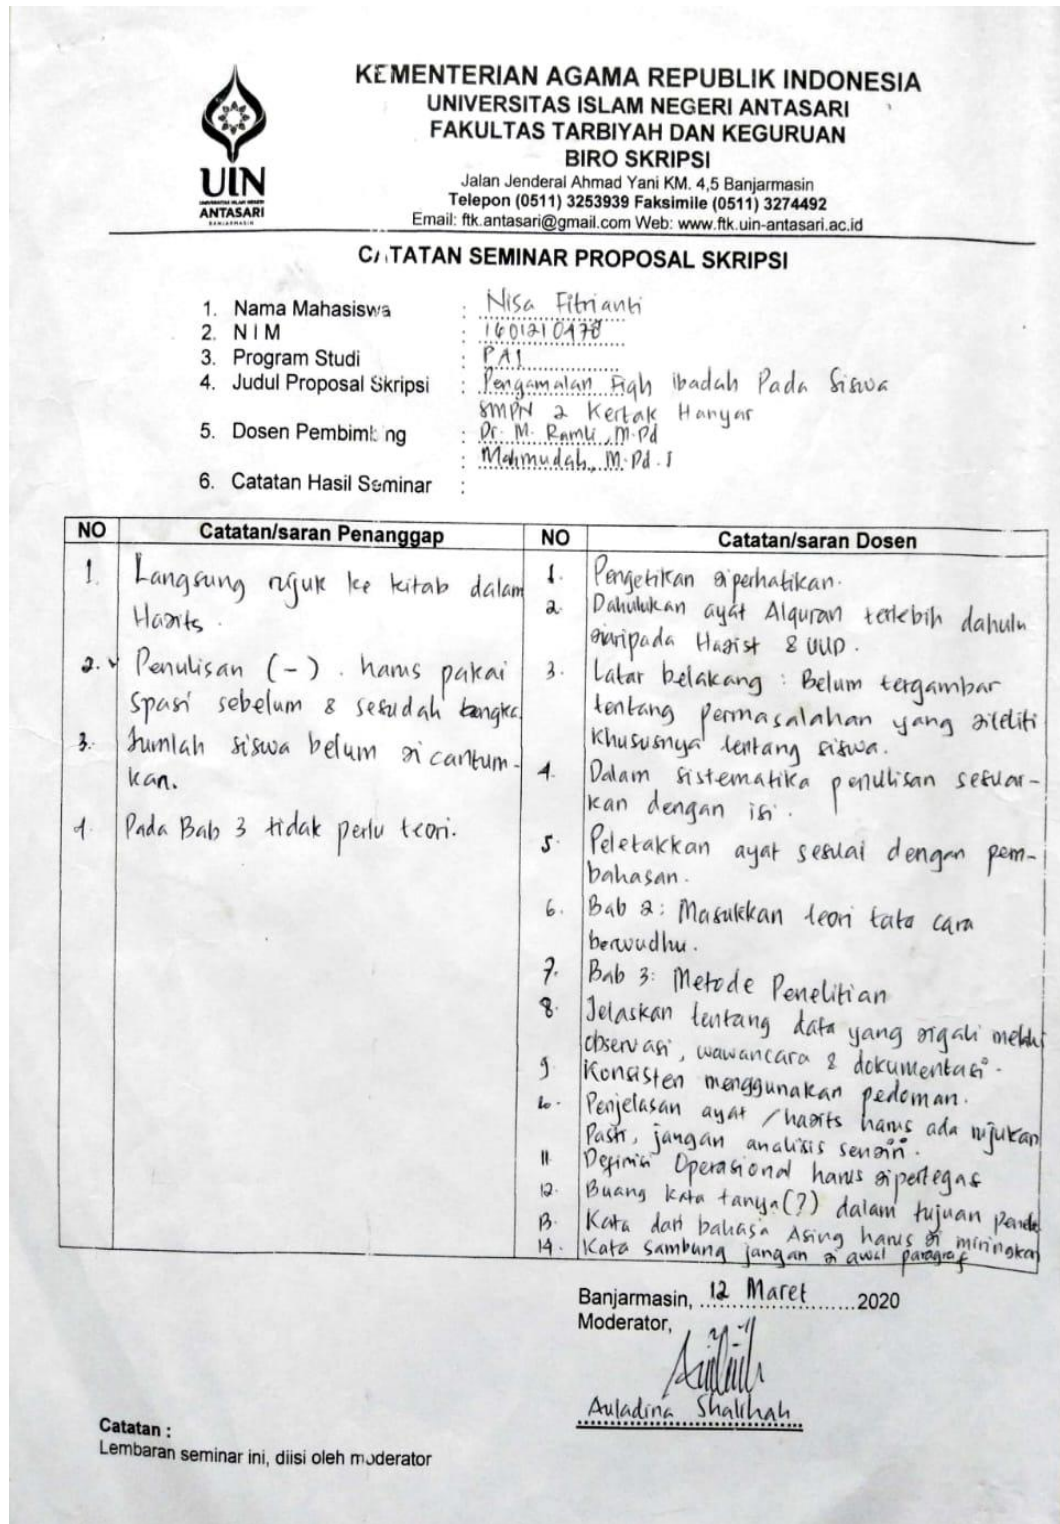 UIN
UNIVERSITAS ISLAM NEGERI
ANTASARI
BANJARMASIN
KEMENTERIAN AGAMA REPUBLIK INDONESIA
UNIVERSITAS ISLAM NEGERI ANTASARI
FAKULTAS TARBIYAH DAN KEGURUAN
BIRO SKRIPSI
Jalan Jenderal Ahmad Yani KM. 4,5 Banjarmasin
Telepon (0511) 3253939 Faksimile (0511) 3274492
Email: ftk.antasari@gmail.com Web: www.ftk.uin-antasari.ac.id
CATATAN SEMINAR PROPOSAL SKRIPSI
1. Nama Mahasiswa : Nisa Fitrianti
2. N I M : 1601210478
3. Program Studi : PAI
4. Judul Proposal Skripsi : Pengamalan Fiqh ibadah Pada Siswa
SMPN 2 Kertak Hanyar
5. Dosen Pembimbing : Dr. M. Ramli, M.Pd
: Mahmudah, M.Pd.I
6. Catatan Hasil Seminar :
NO Catatan/saran Penanggap
1. Langsung rujuk ke kitab dalam
Hadits.
2. Penulisan (-). harus pakai
spasi sebelum & sesudah
3. Jumlah siswa belum di cantum-
kan.
4. Pada Bab 3 tidak perlu teori.
NO Catatan/saran Dosen
1. Pengetikan diperhatikan.
2. Dahulukan ayat Alquran terlebih dahulu
daripada Hadist & UUD.
3. Latar belakang : Belum tergambar
tentang permasalahan yang diteliti
khususnya tentang siswa.
4. Dalam sistematika penulisan sesuai-
kan dengan isi.
5. Peletakkan ayat sesuai dengan pem-
bahasan.
6. Bab 2: Masukkan teori tata cara
berwudhu.
7. Bab 3: Metode Penelitian
8. Jelaskan tentang data yang digali melalui
observasi, wawancara & dokumentasi.
9. Konsisten menggunakan pedoman.
10. Penjelasan ayat / hadits harus ada rujukan
Pasti, jangan analisis sendiri.
11. Definisi Operasional harus dipertegas
12. Buang kata tanya (?) dalam tujuan
13. Kata dari bahasa Asing harus di miringkan
14. Kata sambung jangan di awal paragraf
Banjarmasin, 12 Maret 2020
Moderator,
Auladina Shalihah
Catatan :
Lembaran seminar ini, diisi oleh moderator